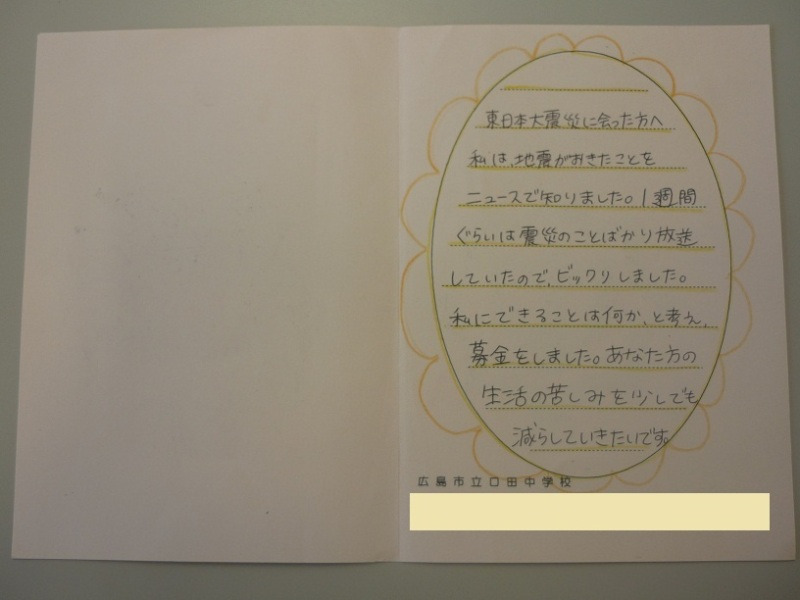 東日本大震災に会った方へ
私は、地震がおきたことを
ニュースで知りました。1週間
ぐらいは震災のことばかり放送
していたので、ビックリしました。
私にできることは何か、と考え、
募金をしました。あなた方の
生活の苦しみを少しでも
減らしていきたいです。
広島市立口田中学校